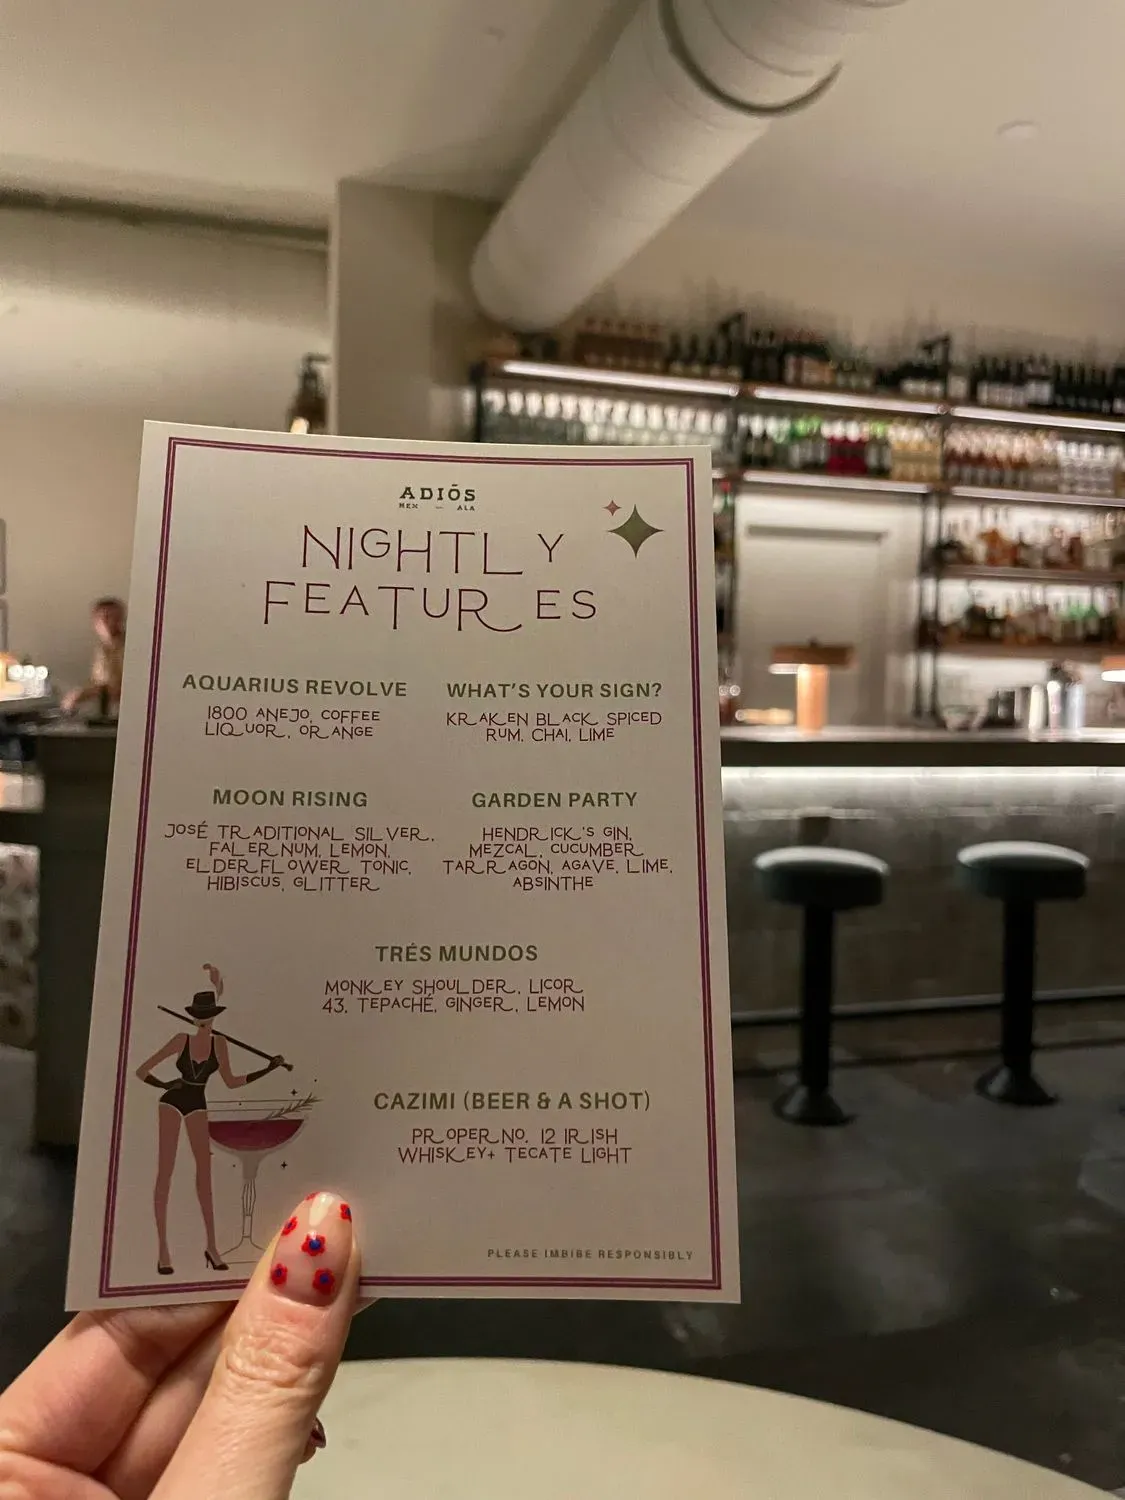 ADIŌS
MEX — ALA
NIGHTLY
FEATURES
AQUARIUS REVOLVE
1800 ANEJO, COFFEE
LIQUOR, ORANGE
WHAT'S YOUR SIGN?
KRAKEN BLACK SPICED
RUM, CHAI, LIME
MOON RISING
JOSÉ TRADITIONAL SILVER,
FALERNUM, LEMON,
ELDERFLOWER TONIC,
HIBISCUS, GLITTER
GARDEN PARTY
HENDRICK'S GIN,
MEZCAL, CUCUMBER,
TARRAGON, AGAVE, LIME,
ABSINTHE
TRÉS MUNDOS
MONKEY SHOULDER, LICOR
43, TEPACHÉ, GINGER, LEMON
CAZIMI (BEER & A SHOT)
PROPER NO. 12 IRISH
WHISKEY+ TECATE LIGHT
PLEASE IMBIBE RESPONSIBLY